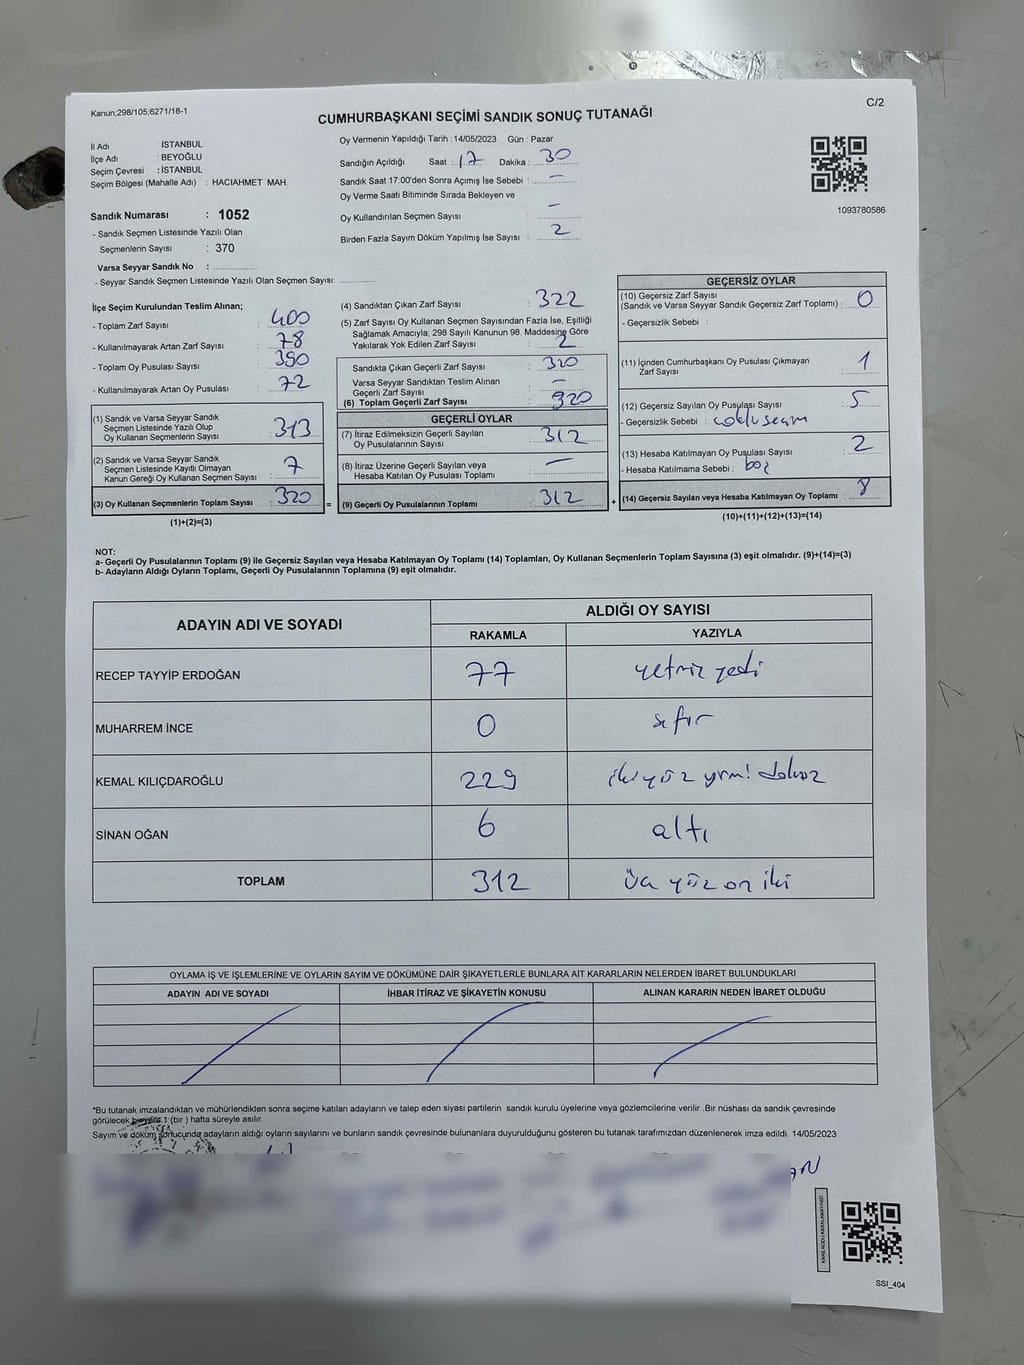 Kanun:298/105;6271/18-1
C/2
CUMHURBAŞKANI SEÇİMİ SANDIK SONUÇ TUTANAĞI
İl Adı : İSTANBUL
İlçe Adı : BEYOĞLU
Seçim Çevresi : İSTANBUL
Seçim Bölgesi (Mahalle Adı) : HACIAHMET MAH.
Sandık Numarası : 1052
- Sandık Seçmen Listesinde Yazılı Olan
Seçmenlerin Sayısı : 370
Varsa Seyyar Sandık No :
- Seyyar Sandık Seçmen Listesinde Yazılı Olan Seçmen Sayısı:
Oy Vermenin Yapıldığı Tarih : 14/05/2023 Gün : Pazar
Sandığın Açıldığı Saat : 17 Dakika : 30
Sandık Saat 17:00'den Sonra Açımış İse Sebebi : —
Oy Verme Saati Bitiminde Sırada Bekleyen ve
Oy Kullandırılan Seçmen Sayısı : —
Birden Fazla Sayım Döküm Yapılmış İse Sayısı : 2
1093780586
İlçe Seçim Kurulundan Teslim Alınan;
- Toplam Zarf Sayısı : 400
- Kullanılmayarak Artan Zarf Sayısı : 78
- Toplam Oy Pusulası Sayısı : 390
- Kullanılmayarak Artan Oy Pusulası : 72
(1) Sandık ve Varsa Seyyar Sandık
Seçmen Listesinde Yazılı Olup
Oy Kullanan Seçmenlerin Sayısı : 313
(2) Sandık ve Varsa Seyyar Sandık
Seçmen Listesinde Kayıtlı Olmayan
Kanun Gereği Oy Kullanan Seçmen Sayısı : 7
(3) Oy Kullanan Seçmenlerin Toplam Sayısı : 320
(1)+(2)=(3)
=
(4) Sandıktan Çıkan Zarf Sayısı : 322
(5) Zarf Sayısı Oy Kullanan Seçmen Sayısından Fazla İse, Eşitliği
Sağlamak Amacıyla; 298 Sayılı Kanunun 98. Maddesine Göre
Yakılarak Yok Edilen Zarf Sayısı : 2
Sandıkta Çıkan Geçerli Zarf Sayısı : 320
Varsa Seyyar Sandıktan Teslim Alınan
Geçerli Zarf Sayısı : —
(6) Toplam Geçerli Zarf Sayısı : 320
GEÇERLİ OYLAR
(7) İtiraz Edilmeksizin Geçerli Sayılan
Oy Pusulalarının Sayısı : 312
(8) İtiraz Üzerine Geçerli Sayılan veya
Hesaba Katılan Oy Pusulası Toplamı : —
(9) Geçerli Oy Pusulalarının Toplamı : 312
+
GEÇERSİZ OYLAR
(10) Geçersiz Zarf Sayısı
(Sandık ve Varsa Seyyar Sandık Geçersiz Zarf Toplamı) : 0
- Geçersizlik Sebebi :
(11) İçinden Cumhurbaşkanı Oy Pusulası Çıkmayan
Zarf Sayısı : 1
(12) Geçersiz Sayılan Oy Pusulası Sayısı : 5
- Geçersizlik Sebebi :
(13) Hesaba Katılmayan Oy Pusulası Sayısı : 2
- Hesaba Katılmama Sebebi : boş
(14) Geçersiz Sayılan veya Hesaba Katılmayan Oy Toplamı : 8
(10)+(11)+(12)+(13)=(14)
NOT:
a- Geçerli Oy Pusulalarının Toplamı (9) ile Geçersiz Sayılan veya Hesaba Katılmayan Oy Toplamı (14) Toplamları, Oy Kullanan Seçmenlerin Toplam Sayısına (3) eşit olmalıdır. (9)+(14)=(3)
b- Adayların Aldığı Oyların Toplamı, Geçerli Oy Pusulalarının Toplamına (9) eşit olmalıdır.
ADAYIN ADI VE SOYADI
ALDIĞI OY SAYISI
RAKAMLA YAZIYLA
RECEP TAYYİP ERDOĞAN 77 yetmiş yedi
MUHARREM İNCE 0 sıfır
KEMAL KILIÇDAROĞLU 229 iki yüz yirmi dokuz
SİNAN OĞAN 6 altı
TOPLAM 312 üç yüz on iki
OYLAMA İŞ VE İŞLEMLERİNE VE OYLARIN SAYIM VE DÖKÜMÜNE DAİR ŞİKAYETLERLE BUNLARA AİT KARARLARIN NELERDEN İBARET BULUNDUKLARI
ADAYIN ADI VE SOYADI İHBAR İTİRAZ VE ŞİKAYETİN KONUSU ALINAN KARARIN NEDEN İBARET OLDUĞU
*Bu tutanak imzalandıktan ve mühürlendikten sonra seçime katılan adayların ve talep eden siyasi partilerin sandık kurulu üyelerine veya gözlemcilerine verilir .Bir nüshası da sandık çevresinde
görülecek bir yere 1 (bir ) hafta süreyle asılır.
Sayım ve döküm sonucunda adayların aldığı oyların sayılarını ve bunların sandık çevresinde bulunanlara duyurulduğunu gösteren bu tutanak tarafımızdan düzenlenerek imza edildi. 14/05/2023
KARE KODU KARALAMAYINIZ!
SSI_404